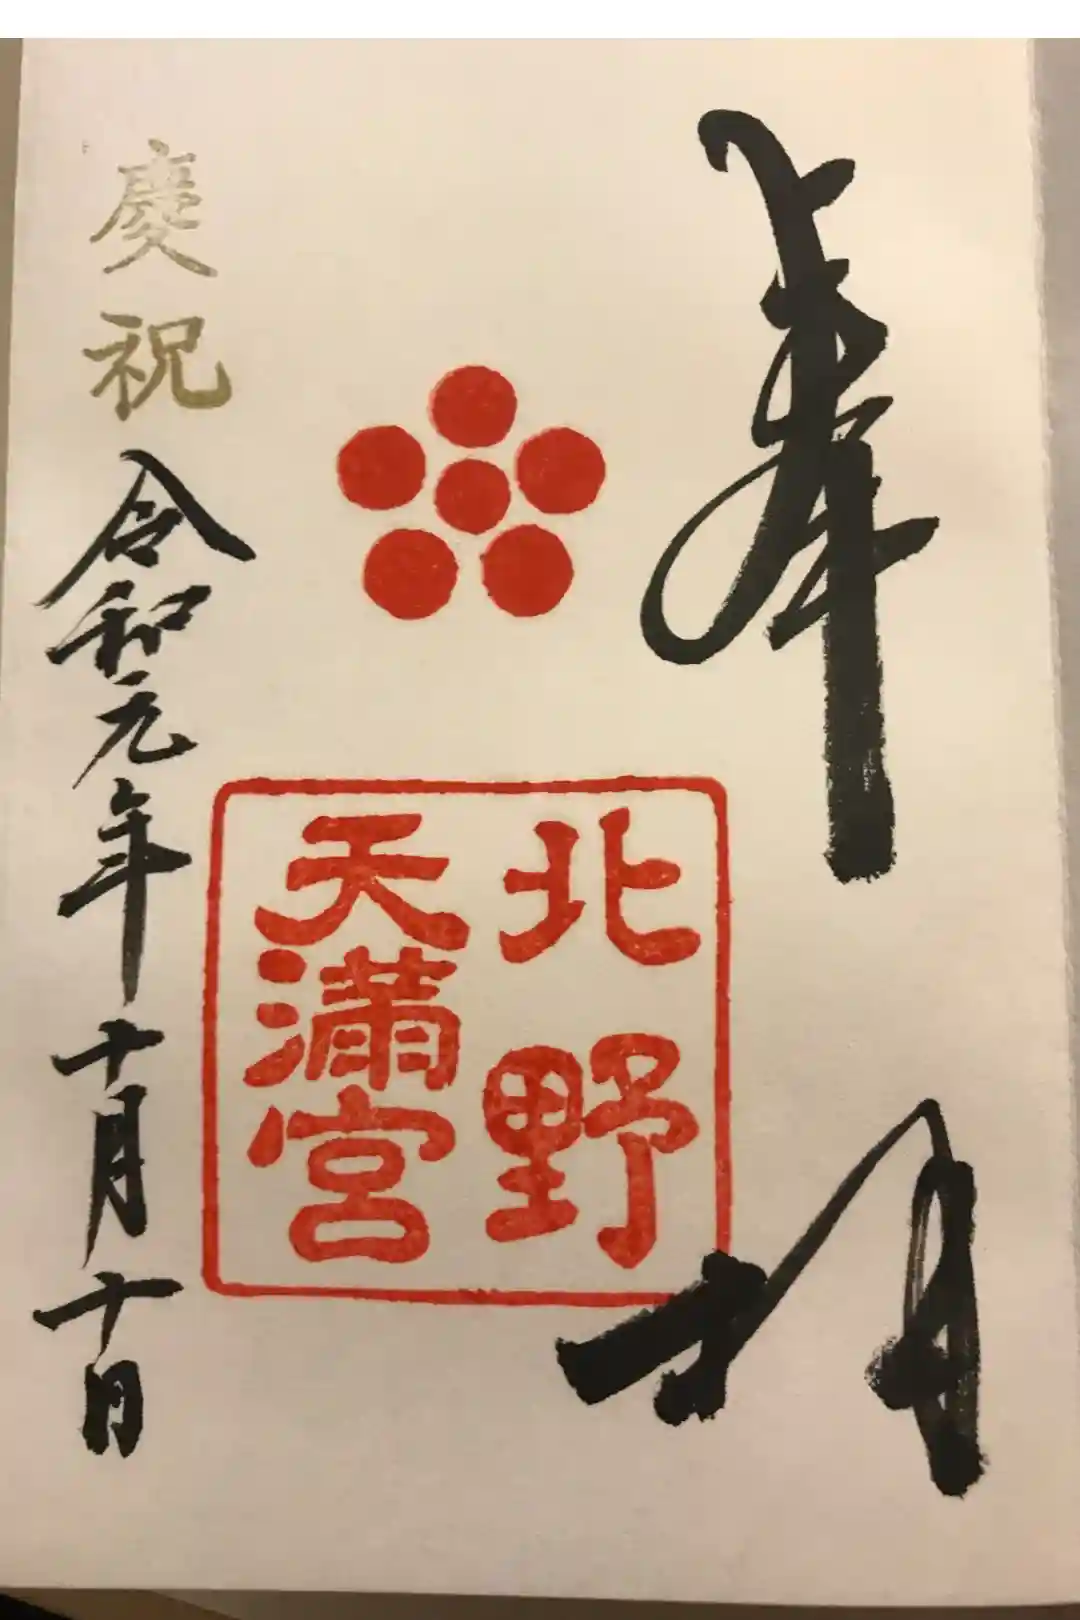 奉拝
北野
天滿宮
慶祝
令和元年十月十日